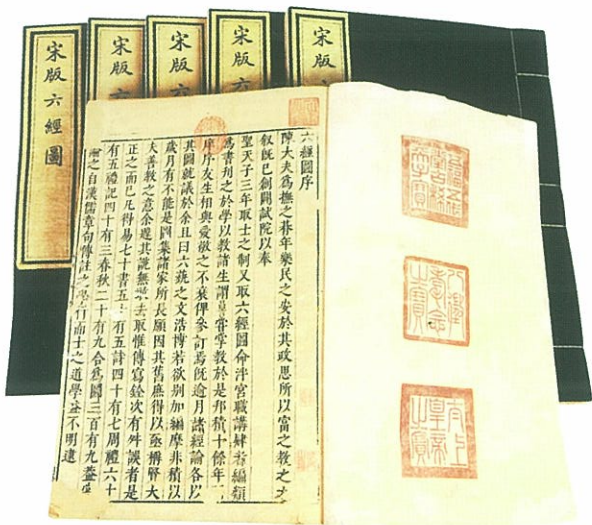 宋版六經圖
宋版六
宋版六
宋版六
宋版六
六經圖序
陳大夫爲撫之朞年樂民之安於其政思所以富之教之之
叙既已創闢試院以奉
聖天子三年取士之制又取六經圖命泮官職講肄者編類
爲書刊之於學以教諸生謂嘗掌教於是邦積十餘年
庠序友生相與愛敬之不衰俾參訂焉既逾月諸經論各以
其圖就議於余且曰六蓺之文浩博若欲别加編摩非積以
歲月有不能是圖集諸家所長願因其舊庶得以亟稱賢大
夫善教之意余遑其說無
去取惟傳寫銓次有舛誤者是
正之而已凡得易七十書五十有五詩四十有七周禮六十
有五禮記四十有三春秋二十有九合爲圖三百有九蓋
之自漢儒章句傳註之學行而士之道學益不明逮
八徵耄念之寶
太上皇帝之寶